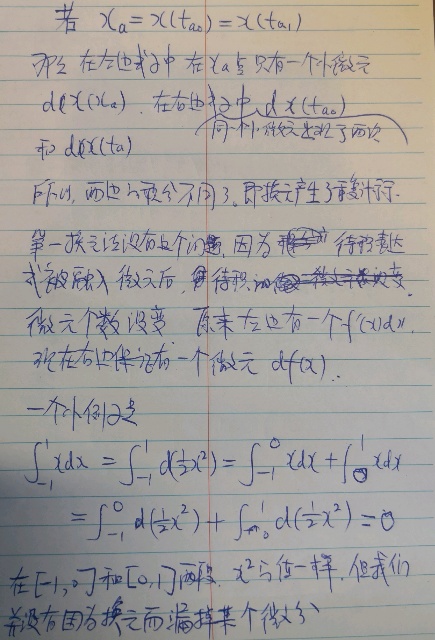 若 x_a = x(t_{a0}) = x(t_{a1})
那么 在左边式子中 在x_a点只有一个小微元
d(x_a). 在右边式子中 dx(t_{a0})
同一个小微元出现了两次
和 dx(t_a)
所以, 两边的积分不同了, 即换元产生了重复计算.
第一换元法没有这个问题, 因为 待积表达
式被融入微元后, 待积
微元个数没变 原来左边有一个f'(x)dx,
现在右边有一个微元 df(x).
一个小例子是
∫_{-1}^{1} xdx = ∫_{-1}^{1} d(½x²) = ∫_{-1}^{0} xdx + ∫_{0}^{1} xdx
= ∫_{-1}^{0} d(½x²) + ∫_{0}^{1} d(½x²) = 0
在[-1,0]和[0,1]两段, x²的值一样, 但我们
并没有因为换元而漏掉某个微分